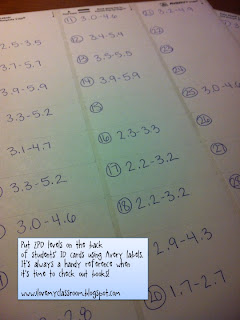 2.5-3.5
3.7-5.7
3.9-5.9
3.3-5.2
3.1-4.7
3.3-5.2
3.0-4.6
2.8
11 3.0-4.6
12 3.4-5.4
13 3.5-5.5
14 3.9-5.9
15
16 2.3-3.3
17 2.2-3.2
18 2.2-3.2
2.9-4.3
20 1.7-2.7
22
23
24
25 3.0-4.6
26
27
Put ZPD levels on the back
of students' ID cards using Avery labels.
It's always a handy reference when
it's time to check out books!
www.ilovemyclassroom.blogspot.com